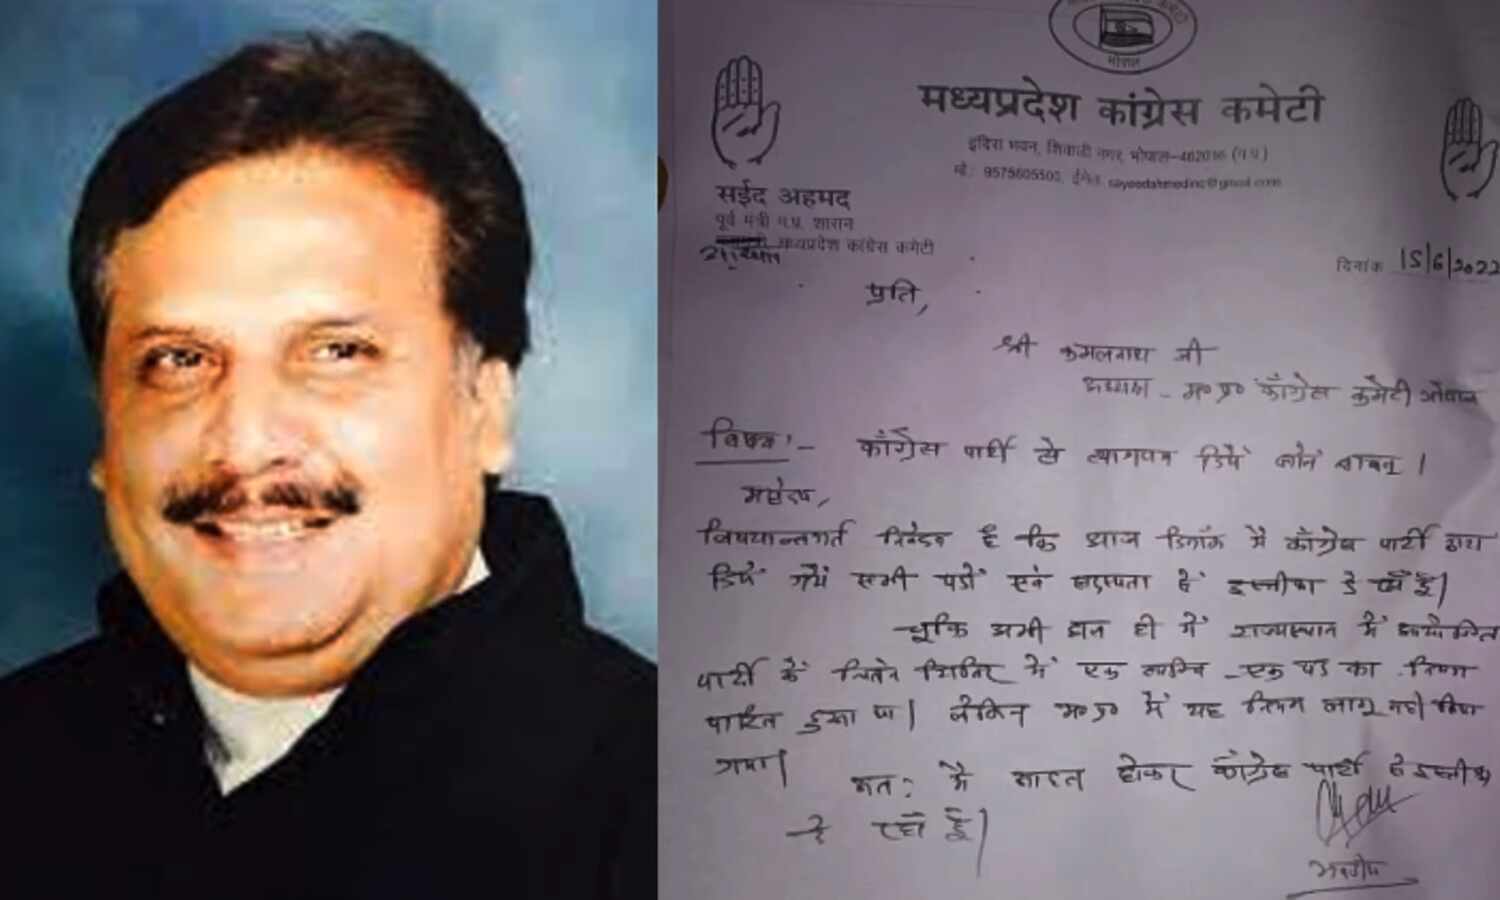 भोपाल
मध्यप्रदेश कांग्रेस कमेटी
इंदिरा भवन, शिवाजी नगर, भोपाल-462016 (म.प्र.)
मो.: 9575605503, ईमेल: sayeedahmedinc@gmail.com
सईद अहमद
पूर्व मंत्री म.प्र. शासन
मध्यप्रदेश कांग्रेस कमेटी
दिनांक 15/6/2022
प्रति,
श्री कमलनाथ जी
अध्यक्ष - म०प्र० काँग्रेस कमेटी भोपाल
विषय:- काँग्रेस पार्टी से त्यागपत्र दिये जाने बावत् ।
महोदय,
विषयान्तर्गत निवेदन है कि आज दिनाँक मैं काँग्रेस पार्टी द्वारा
दिये गये सभी पदों एवं सदस्यता से इस्तीफा दे रहाँ हूँ।
चूंकि अभी हाल ही में राजस्थान में आयोजित
पार्टी के शिविर में एक व्यक्ति - एक पद का निर्णय
पारित हुआ था। लेकिन म०प्र० में यह नियम लागू नही किया
गया।
अतः मैं आहत होकर काँग्रेस पार्टी से इस्तीफा
दे रहाँ हूँ।
भवदीय